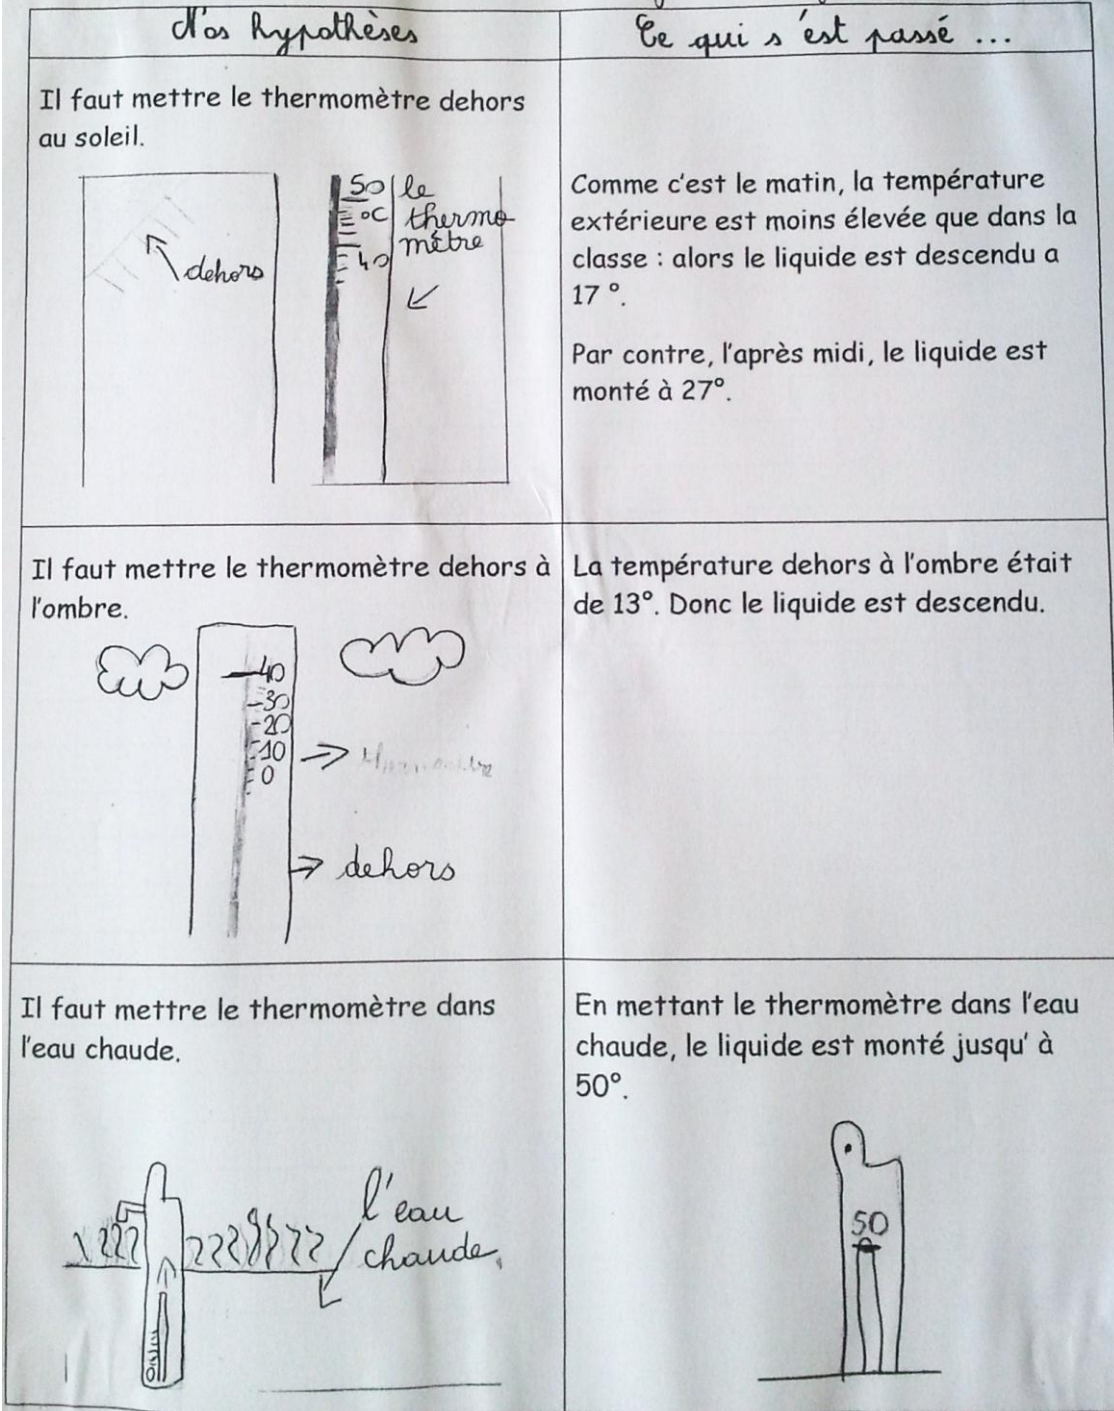 Nos hypothèses
Ce qui s'est passé ...
Il faut mettre le thermomètre dehors
au soleil.
dehors
50
°C
40
le
thermo
mètre
Comme c'est le matin, la température
extérieure est moins élevée que dans la
classe : alors le liquide est descendu a
17 °.
Par contre, l'après midi, le liquide est
monté à 27°.
Il faut mettre le thermomètre dehors à
l'ombre.
40
30
20
10
0
dehors
La température dehors à l'ombre était
de 13°. Donc le liquide est descendu.
Il faut mettre le thermomètre dans
l'eau chaude.
l'eau
chaude.
En mettant le thermomètre dans l'eau
chaude, le liquide est monté jusqu' à
50°.
50